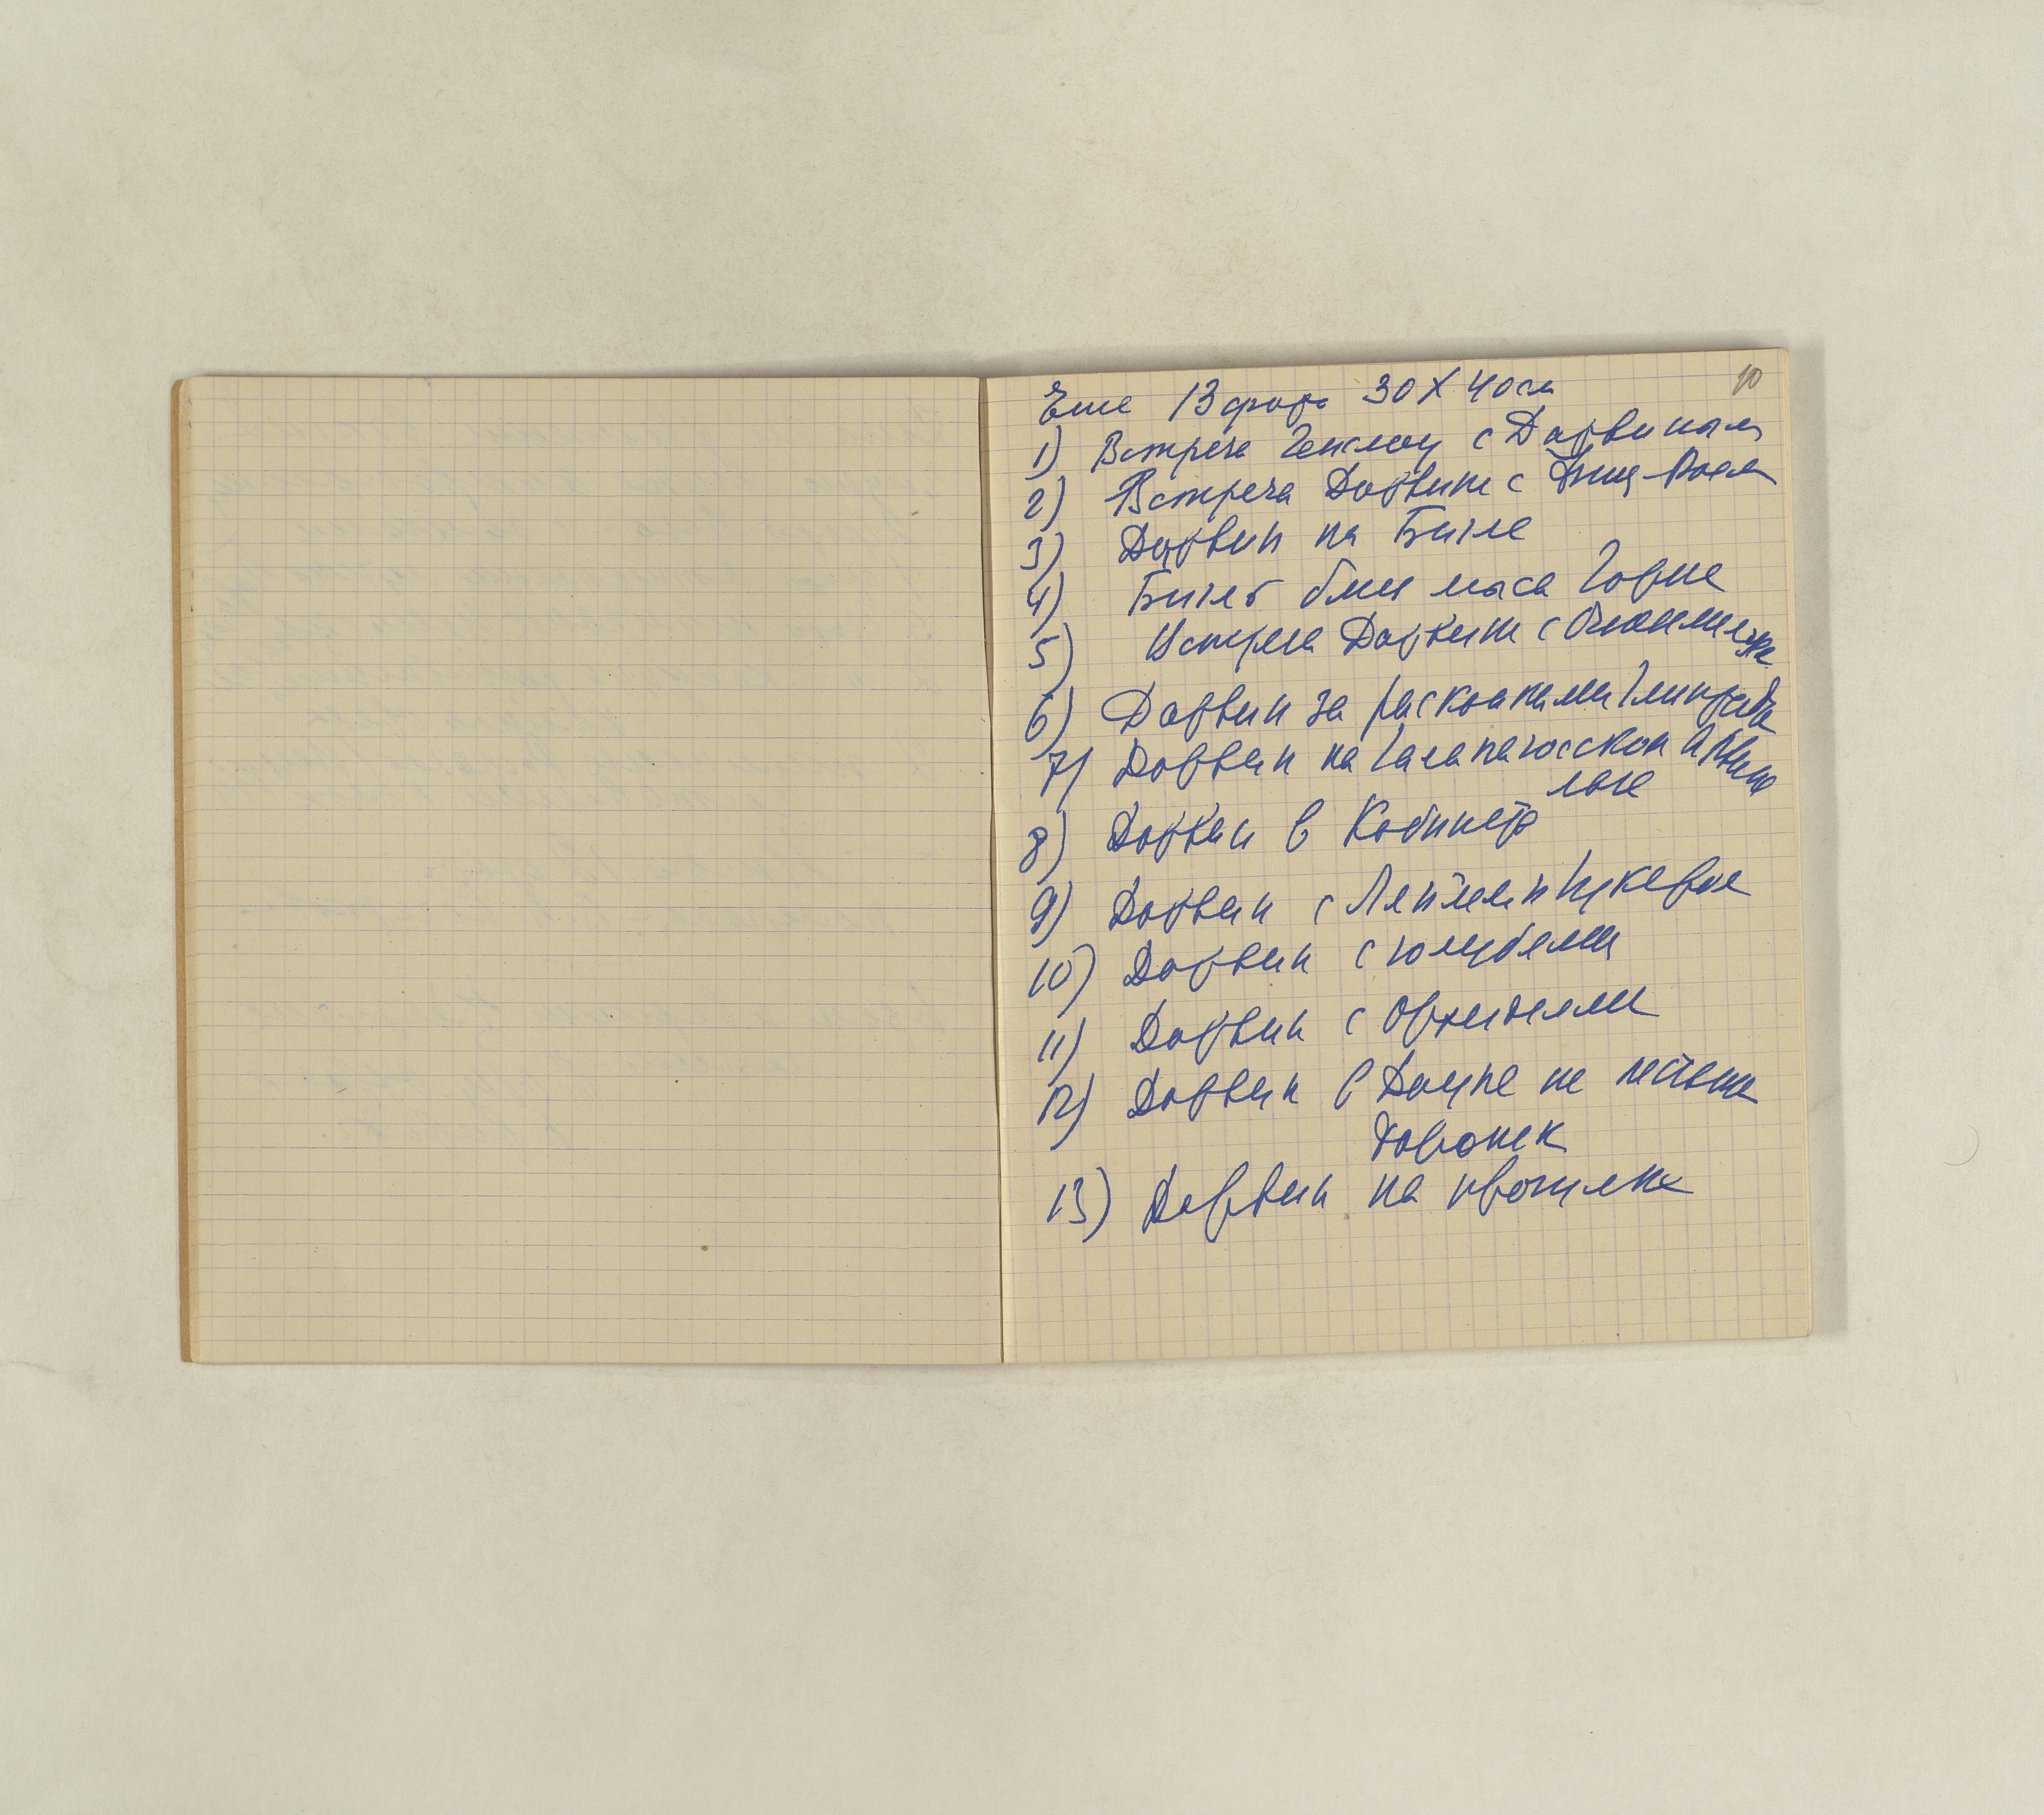 10
Еще 13 фото 30 X 40 см
1) Встреча Генслоу с Дарвиным
2) Встреча Дарвина с Фиц-Роем
3) Дарвин на Бигле
4) Бигль близ мыса Горна
5) Встреча Дарвина с
6) Дарвин за раскопками глиптодона
7) Дарвин на Галапагосском Архипе
лаге
8) Дарвин в Кабинете
9) Дарвин с Ляйелем и Гукером
10) Дарвин с голубями
11) Дарвин с Орхидеями
12) Дарвин в Дауне на песчаной
дорожек
13) Дарвин на прогулке